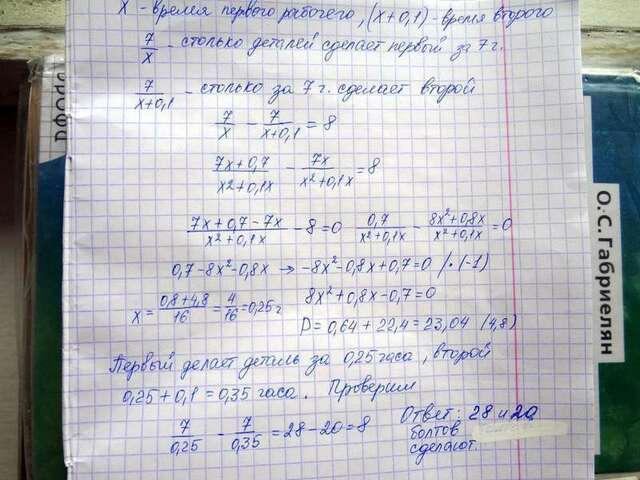 X - время первого рабочего, (x+0,1) - время второго
7/x - столько деталей сделает первый за 7 г.
7/(x+0,1) - столько за 7 г. сделает второй
7/x - 7/(x+0,1) = 8
(7x+0,7)/(x²+0,1x) - 7x/(x²+0,1x) = 8
(7x+0,7-7x)/(x²+0,1x) - 8=0 0,7/(x²+0,1x) - (8x²+0,8x)/(x²+0,1x) = 0
0,7-8x²-0,8x → -8x²-0,8x+0,7=0 /·(-1)
x = (0,8+4,8)/16 = 4/16 = 0,25 г 8x²+0,8x-0,7=0
D=0,64+22,4=23,04 (4,8)
Первый делает деталь за 0,25 часа, второй
0,25+0,1=0,35 часа. Проверим
7/0,25 - 7/0,35 = 28-20=8 Ответ: 28 и 20
болтов
сделают.
О.С. Габриелян